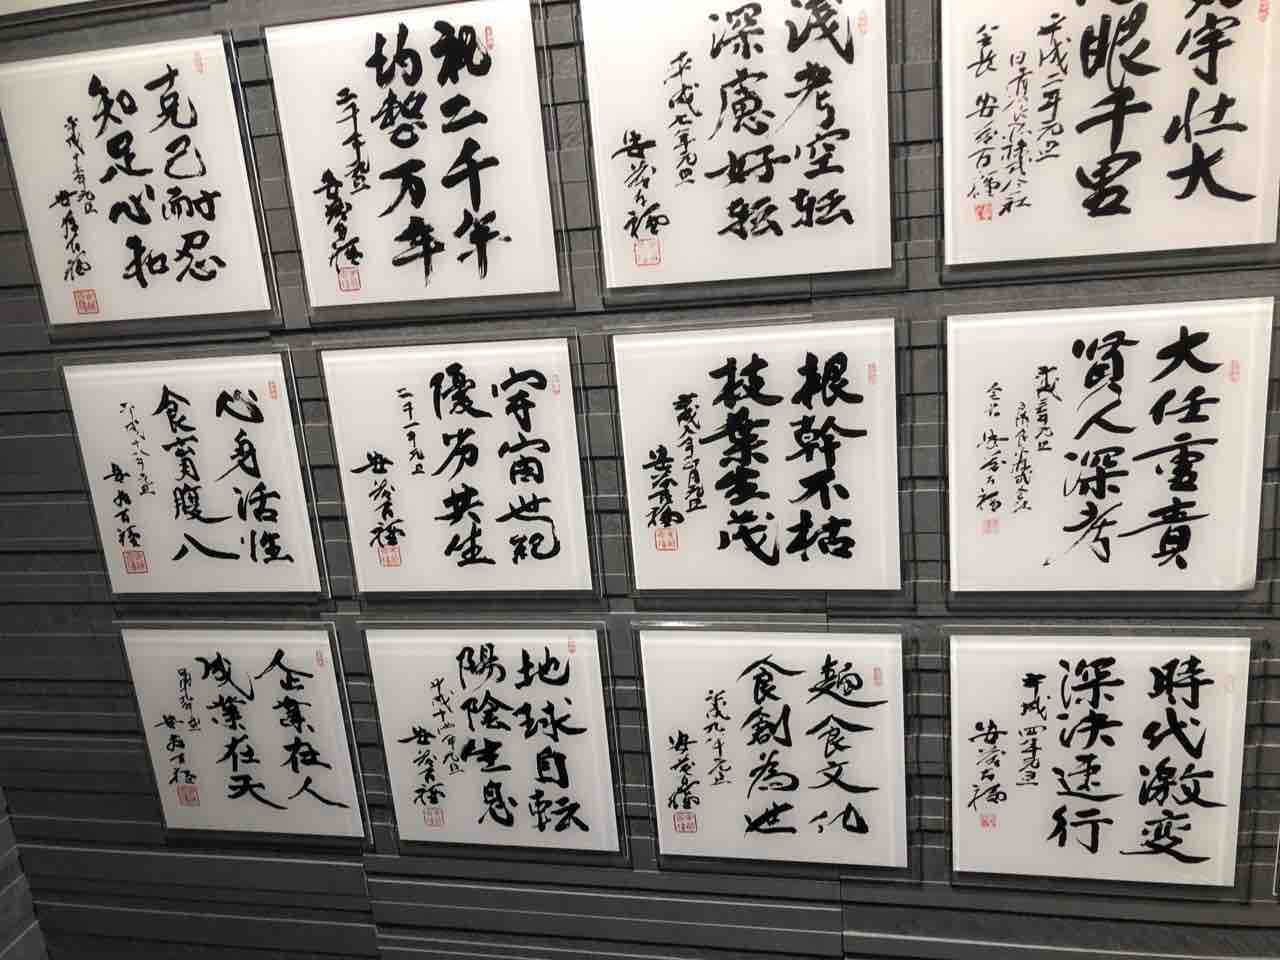 克己耐忍
知足心和
祝二千年
約款万年
二千年元旦
浅考空転
深慮好転
平成七年元旦
安藤百福
宇壮大
眼千里
平成二年元旦
日清食品株式会社
会長 安藤百福
心身活性
食育腹八
平成十八年元旦
安藤百福
宇宙世紀
優劣共生
二千一年元旦
安藤百福
根幹不枯
枝葉生茂
安藤百福
大任重責
賢人深考
安藤百福
企業在人
成業在天
安藤百福
地球自転
陽陰生息
平成十四年元旦
安藤百福
麺食文化
食創為世
平成九年元旦
安藤百福
時代激変
深決速行
平成四年元旦
安藤百福